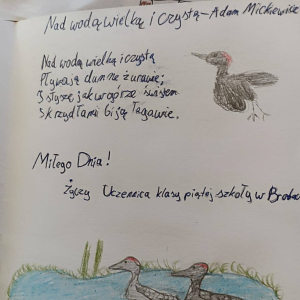 Nad wodą wielką i czystą - Adam Mickiewicz
Nad wodą wielką i czystą
Pływają dumne żurawie;
I słyszę jak w górze świstem
Skrzydłami biją łagawie.
Miłego Dnia!
Życzy Uczennica klasy piątej szkoły w